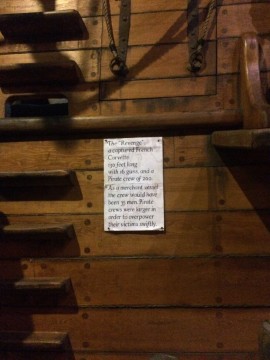 The "Revenge"
a captured French
Corvette
130 feet long
with 16 guns and a
Pirate crew of 200.
As a merchant vessel
the crew would have
been 35 men. Pirate
crews were larger in
order to overpower
their victims swiftly.